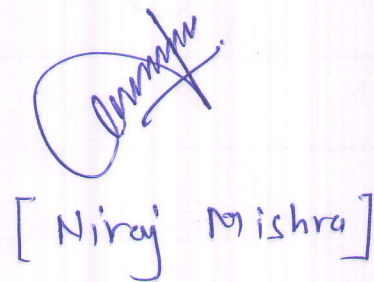 [ Niraj Mishra ]